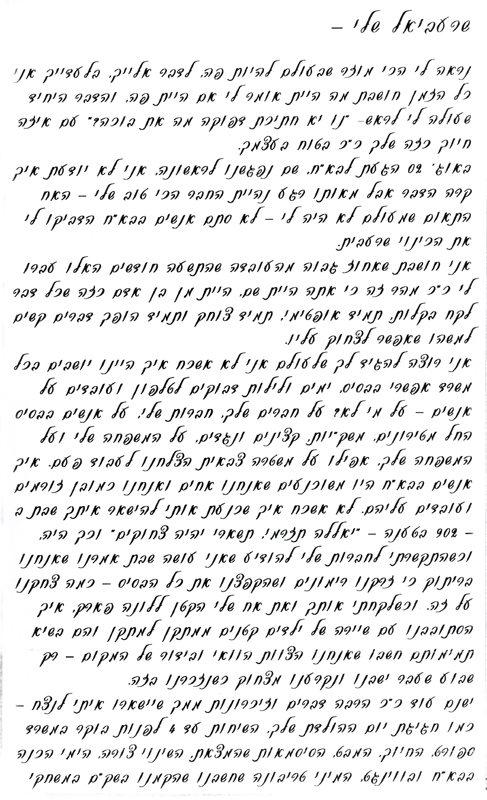 שרעביאל שלי –
נראה לי הכי מוזר שבעולם להיות פה, לדבר אלייך, בלעדייך אני
כל הזמן חושבת מה היית אומר לי אם היית פה, והדבר היחיד
שעולה לי לראש- "נו יא חתיכת דפוקה מה את בוכה?" עם איזה
חיוך כזה שלך כ"כ בטוח בעצמך.
באוג' 02 הגעת לבא"ח, שם נפגשנו לראשונה, אני לא יודעת איך
קרה הדבר אבל מאותו רגע נהיית החבר הכי טוב שלי – האח
התאום שמעולם לא היה לי – לא סתם אנשים בבא"ח הדביקו לי
את הכינוי שרעבית.
אני חושבת שאחוז גבוה מהעובדה שהתשעה חודשים האלו עברו
לי כ"כ מהר זה כי אתה היית שם, היית מן בן אדם כזה שכל דבר
לקח בקלות, תמיד אופטימי, תמיד צוחק ותמיד הופך דברים קשים
למשהו שאפשר לצחוק עליו.
אני רוצה להגיד לך שלעולם אני לא אשכח איך היינו יושבים בכל
משרד אפשרי בבסיס, ימים ולילות דבוקים לטלפון ועובדים על
אנשים – על מי לא? על חברים שלך, חברות שלי, על אנשים בבסיס
החל מטירונים, משקי"ות, קצינים ונגדים, על המשפחה שלי ועל
המשפחה שלך, אפילו על משטרה צבאית הצלחנו לעבוד פעם. איך
אנשים בבא"ח היו משוכנעים שאנחנו אחים ואנחנו כמובן זורמים
ועובדים עליהם. לא אשכח איך שכנעת אותי להישאר איתך שבת ב
– 902 בטענה – "יאללה תזרמי, תשארי יהיה צחוקים" וכך היה,
וכשהתקשרתי לחברות שלי להודיע שאני עושה שבת אמרנו שאנחנו
בריתוק כי זרקנו רימונים ושהקפצנו את כל הבסיס – כמה צחקנו
על זה, וכשלקחתי אותך ואת אח שלי הקטן ללונה פארק, איך
הסתובבנו עם שיירה של ילדים קטנים ממתקן למתקן והם בשיא
תמימותם חשבו שאנחנו הצוות הוואי ובידור של המקום – רק
שבוע שעבר ישבנו ונקרענו מצחוק כשנזכרנו בזה.
ישנם עוד כ"כ הרבה דברים וזיכרונות ממך שיישארו איתי לנצח –
כמו חגיגת יום ההולדת שלך, השיחות עד 4 לפנות בוקר במשרד
ספורט, החיוך, המבט, הסיסמאות שהמצאת, השינוי צורה, הימי הכנה
בבא"ח ובווינגט, המיני טריבונה שחשבנו שהקמנו בשק"ם במשחקי